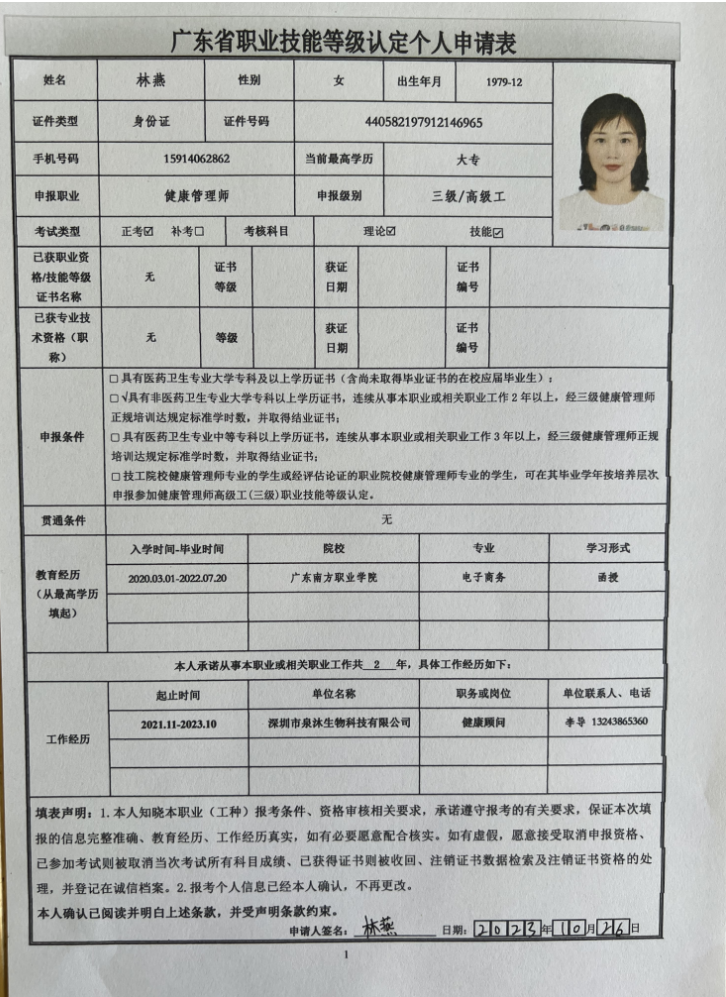 广东省职业技能等级认定个人申请表
姓名 林燕 性别 女 出生年月 1979-12
证件类型 身份证 证件号码 440582197912146965
手机号码 15914062862 当前最高学历 大专
申报职业 健康管理师 申报级别 三级/高级工
考试类型 正考☑ 补考☐ 考核科目 理论☑ 技能☑
已获职业资格/技能等级证书名称 无 证书等级 获证日期 证书编号
已获专业技术资格（职称） 无 等级 获证日期 证书编号
申报条件
☐具有医药卫生专业大学专科及以上学历证书（含尚未取得毕业证书的在校应届毕业生）；
☐√具有非医药卫生专业大学专科以上学历证书，连续从事本职业或相关职业工作2年以上，经三级健康管理师
正规培训达规定标准学时数，并取得结业证书；
☐具有医药卫生专业中等专科以上学历证书，连续从事本职业或相关职业工作3年以上，经三级健康管理师正规
培训达规定标准学时数，并取得结业证书；
☐技工院校健康管理师专业的学生或经评估论证的职业院校健康管理师专业的学生，可在其毕业学年按培养层次
申报参加健康管理师高级工(三级)职业技能等级认定。
贯通条件 无
教育经历（从最高学历填起）
入学时间-毕业时间 院校 专业 学习形式
2020.03.01-2022.07.20 广东南方职业学院 电子商务 函授
本人承诺从事本职业或相关职业工作共 2 年，具体工作经历如下：
工作经历
起止时间 单位名称 职务或岗位 单位联系人、电话
2021.11-2023.10 深圳市泉沐生物科技有限公司 健康顾问 李导 13243865360
填表声明：1.本人知晓本职业（工种）报考条件、资格审核相关要求，承诺遵守报考的有关要求，保证本次填
报的信息完整准确、教育经历、工作经历真实，如有必要愿意配合核实。如有虚假，愿意接受取消申报资格、
已参加考试则被取消当次考试所有科目成绩、已获得证书则被收回、注销证书数据检索及注销证书资格的处
理，并登记在诚信档案。2.报考个人信息已经本人确认，不再更改。
本人确认已阅读并明白上述条款，并受声明条款约束。
申请人签名： 林燕 日期：2023年10月26日
1